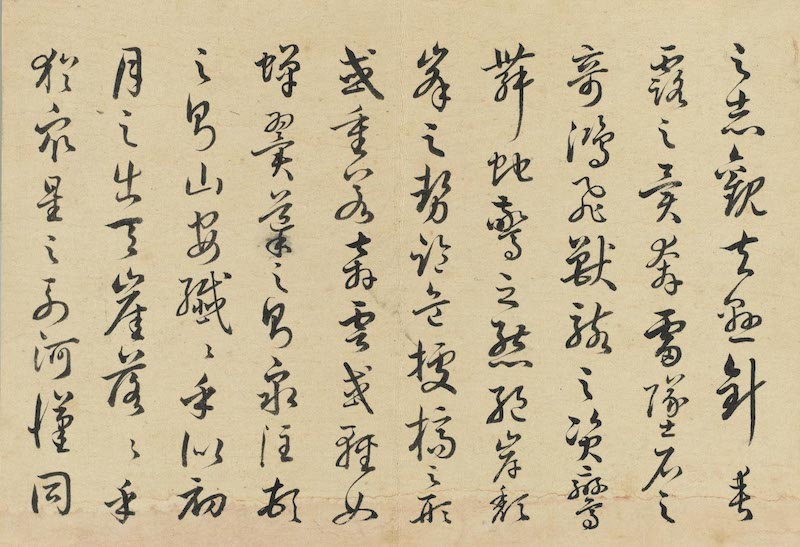 之志觀夫懸針垂
露之異奔雷墜石之
奇鴻飛獸駭之資鸞
舞蛇驚之態絕岸頹
峯之勢臨危據槁之形
或重若崩雲或輕如
蟬翼導之則泉注頓
之則山安纖〻乎似初
月之出天崖落〻乎
猶衆星之列河漢同